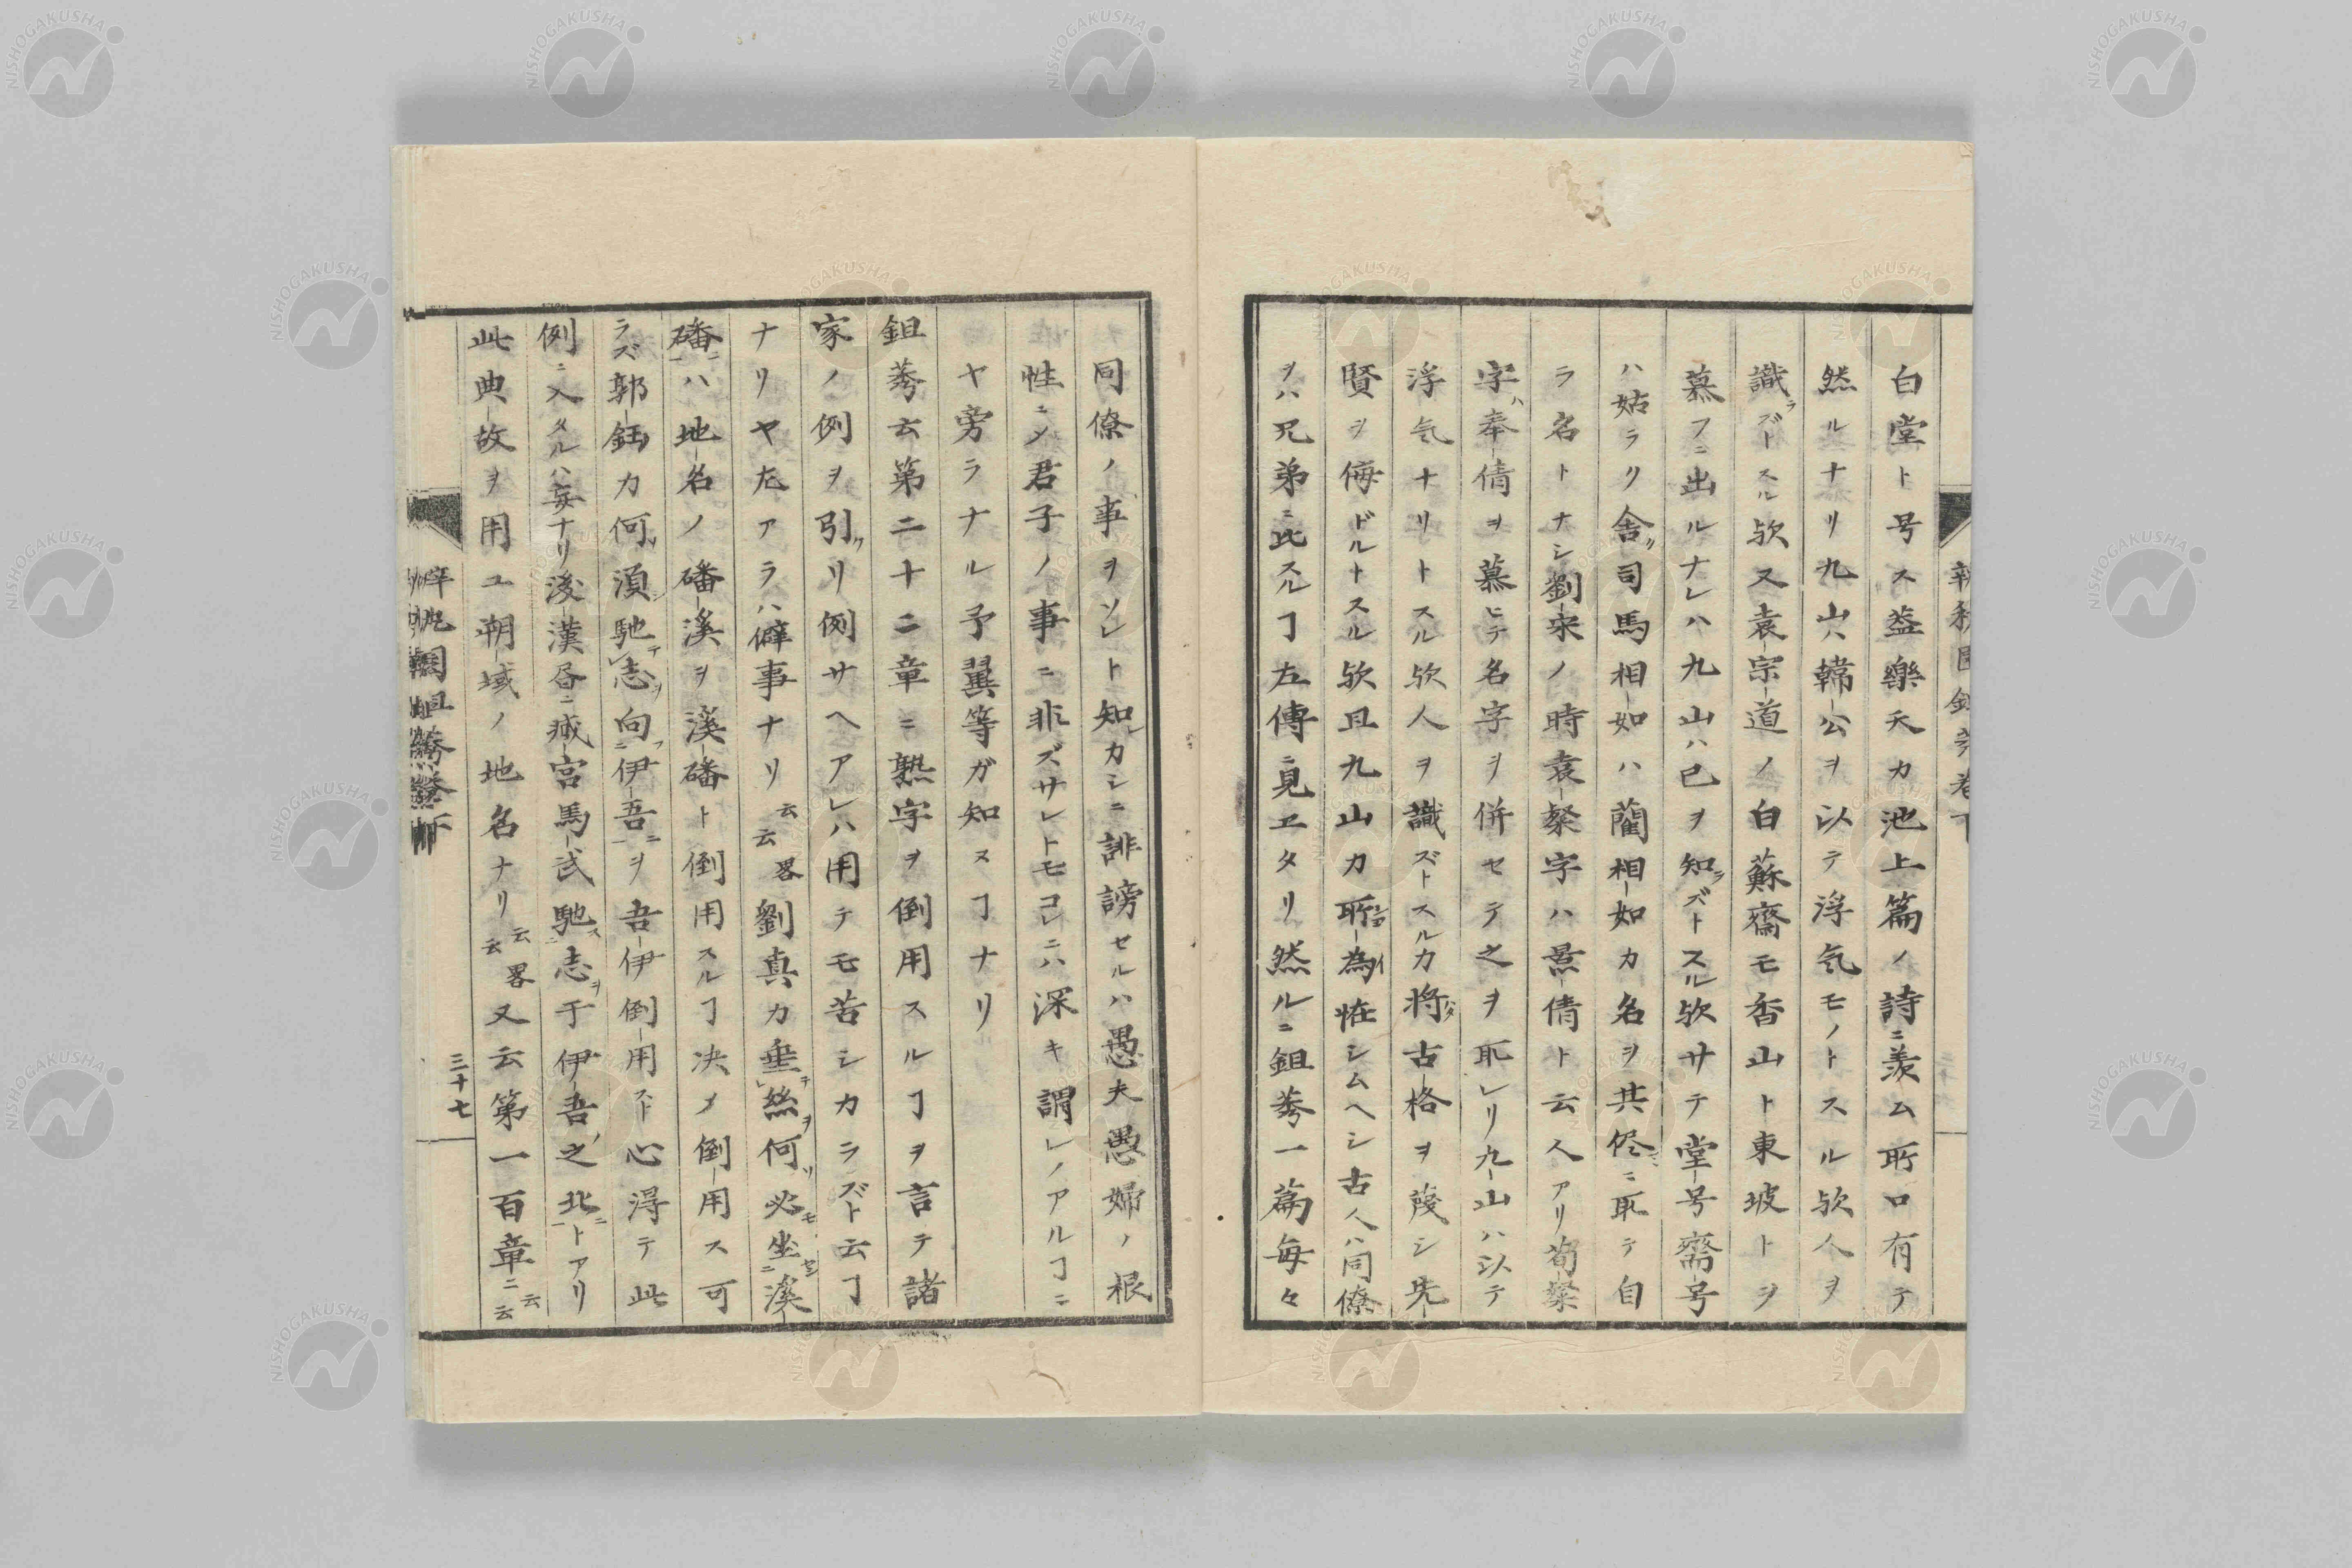 白堂ト号ス盖樂天カ池上篇ノ詩ニ羨ム所口有テ
然ルナリ九山ハ韓公ヲ以テ浮気モノトスル欤人ヲ
識ラズトスル欤又袁宗道ノ白蘇齋モ香山ト東坡トヲ
慕フニ出ルナレハ九山ハ己ヲ知ラズトスル欤サテ堂号齋号
ハ姑ラク舎リ司馬相如ハ藺相如カ名ヲ其侭ニ取テ自
ラ名トナシ劉宋ノ時袁粲字ハ景倩ト云人アリ荀粲
字ハ奉倩ヲ慕ヒテ名字ヲ併セテ之ヲ取レリ九山ハ以テ
浮気ナリトスル欤人ヲ識ズトスルカ将古格ヲ蔑シ先
賢ヲ侮ドルトスル欤且九山カ所為怪シムヘシ古人ハ同僚
ヲハ兄弟ニ比スルヿ左傳ニ見エタリ然ルニ鉏莠一篇毎々
同僚ノ事ヲソレト知レカシニ誹謗セルハ愚夫愚婦ノ根
性ニメ君子ノ事ニ非ズサレトモコレニハ深キ謂レノアルヿニ
ヤ旁ラナル予翼等ガ知ヌヿナリ
鉏莠云第二十二章ニ熟字ヲ倒用スルヿヲ言テ諸
家ノ例ヲ引ケリ例サヘアレハ用テモ苦シカラズト云ヿ
ナリヤ左アラハ僻事ナリ云云畧劉真カ垂テ絲ヲ何ソ必モ坐セン溪
磻ニハ地名ノ磻溪ヲ溪磻ト倒用スルヿ决メ倒用ス可
ラズ郭鈺カ何ソ須馳テ志ヲ向フ伊吾ニヲ吾伊倒用スト心得テ此
例ニ入タルハ妄ナリ後漢昏ニ臧宮馬武馳ス志ヲ于伊吾之ノ北ニトアリ
此典故ヲ用ユ朔域ノ地名ナリ云云畧又云第一百章ニ云云
三十七
NISHOGAKUSHA